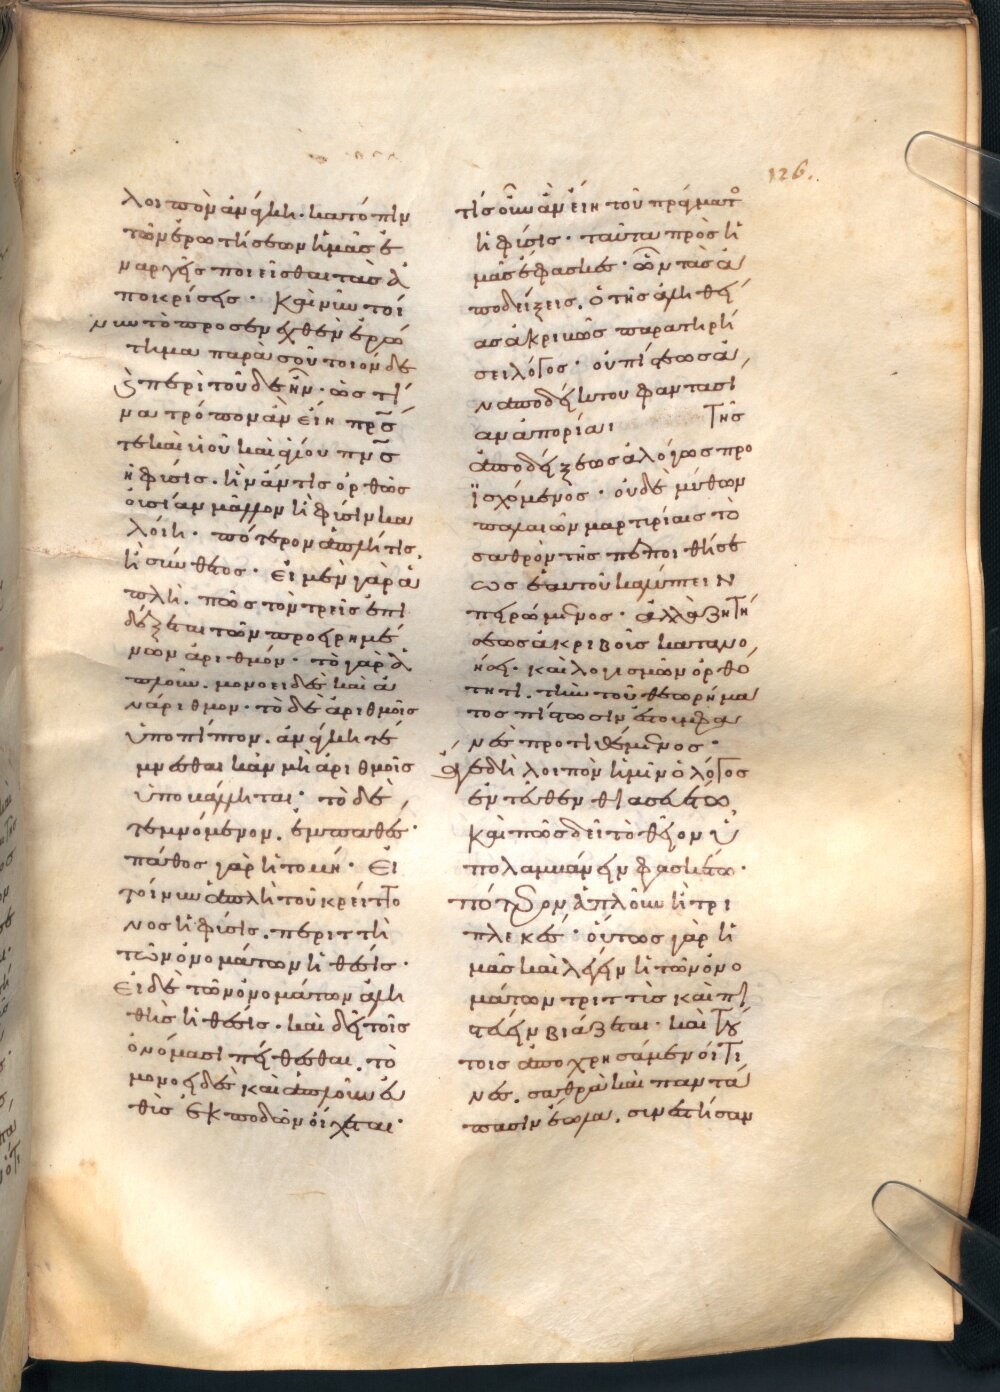 126.
λοιπὸν ἀνάγκη· κατόπιν
τῶν ἐρωτήσεων ἡμᾶς ἐ
ναργεῖς ποιεῖσθαι τὰς ἀ
ποκρίσεις· Καὶ νῦν τοί
νυν τὸ προσενεχθὲν ἐρώ
τημα παρὰ σοῦ τοιόνδε
περὶ τοῦδε ἦν· ὡς τί
να τρόπον ἂν εἴη πρ̅ς
τε καὶ υἱοῦ καὶ ἁγίου πν̅ς
ἡ φύσις. ἣν ἄν τις ὀρθῶς
οὐσίαν μᾶλλον ἢ φύσιν κα
λοίη· πότερον ἁπλῆ τίς,
ἢ σύνθετος· Εἰ μὲν γὰρ ἁ
πλῆ. πῶς τὸν τρεῖς ἐπι
δέξεται τῶν προειρημέ
νων ἀριθμόν· τὸ γὰρ ἁ
πλοῦν. μονοειδὲς καὶ ἀ
νάριθμον· τὸ δὲ ἀριθμοῖς
ὑποπίπτον. ἀνάγκη τέ
μνεσθαι κἂν μὴ ἀριθμοῖς
ὑποβάλληται· τὸ δὲ
τεμνόμενον. ἐμπαθές·
πάθος γὰρ ἡ τομή· Εἰ
τοίνυν ἁπλῆ τοῦ κρείττο
νος ἡ φύσις. περιττὴ
τῶν ὀνομάτων ἡ θέσις·
Εἰ δὲ τῶν ὀνομάτων ἀλη
θὴς ἡ θέσις. καὶ δεῖ τοῖς
ὀνόμασι πείθεσθαι. τὸ
μονοειδὲς καὶ ἁπλοῦν εὐ
θὺς ἐκποδὼν οἴχεται·
τίς οὖν ἂν εἴη τοῦ πράγματο
ἡ φύσις· ταῦτα πρὸς ἡ
μᾶς ἔφασκες· ὧν τὰς ἀ
ποδείξεις. ὁ τῆς ἀληθεί
ας ἀκριβῶς παρατηρή
σει λόγος· οὐ πίστεως ἀ
ναποδείκτου φαντασί
αν ἀπορίαι τῆς
ἀποδείξεως ἀλόγως προ
ϊσχόμενος· οὐδὲ μύθων
παλαιῶν μαρτυρίαις τὸ
σαθρὸν τῆς πεποιθήσε
ως ἑαυτοῦ καλύπτειν
πειρώμενος· ἀλλὰ ζητή
σεως ἀκριβοῦς κατανο
ήσει· καὶ λογισμῶν ὀρθό
τητι. τὴν τοῦ θεωρήμα
τος πίστωσιν
προτιθέμενος·
Ἀγε δὴ λοιπὸν ἡμῖν ὁ λόγος
ἐντεῦθεν θεασάσθω,
καὶ πῶς δεῖ τὸ θεῖον ὑ
πολαμβάνειν φασκέτω·
πότερον ἁπλοῦν ἢ τρι
πλεκές· οὕτως γὰρ ἡ
μᾶς καὶ λέγειν ἡ τῶν ὀνο
μάτων τριττὺς καὶ πι
στεύειν βιάζεται· καὶ τού
τοις ἀποχρησάμενοί τι
νες. σαθρὰ καὶ παντά
πασιν ἕωλα. συνεστήσαν